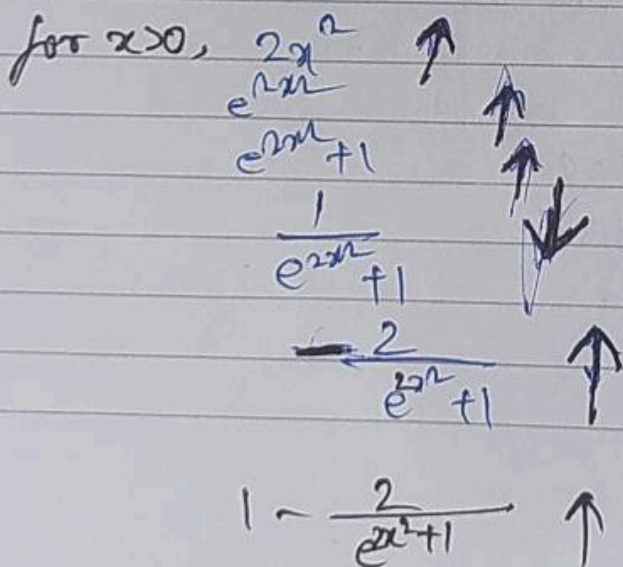 for x>0, 2x² ↑
e^{2x²} ↑
e^{2x²}+1 ↑
1/(e^{2x²}+1) ↓
-2/(e^{2x²}+1) ↑
1 - 2/(e^{2x²}+1) ↑